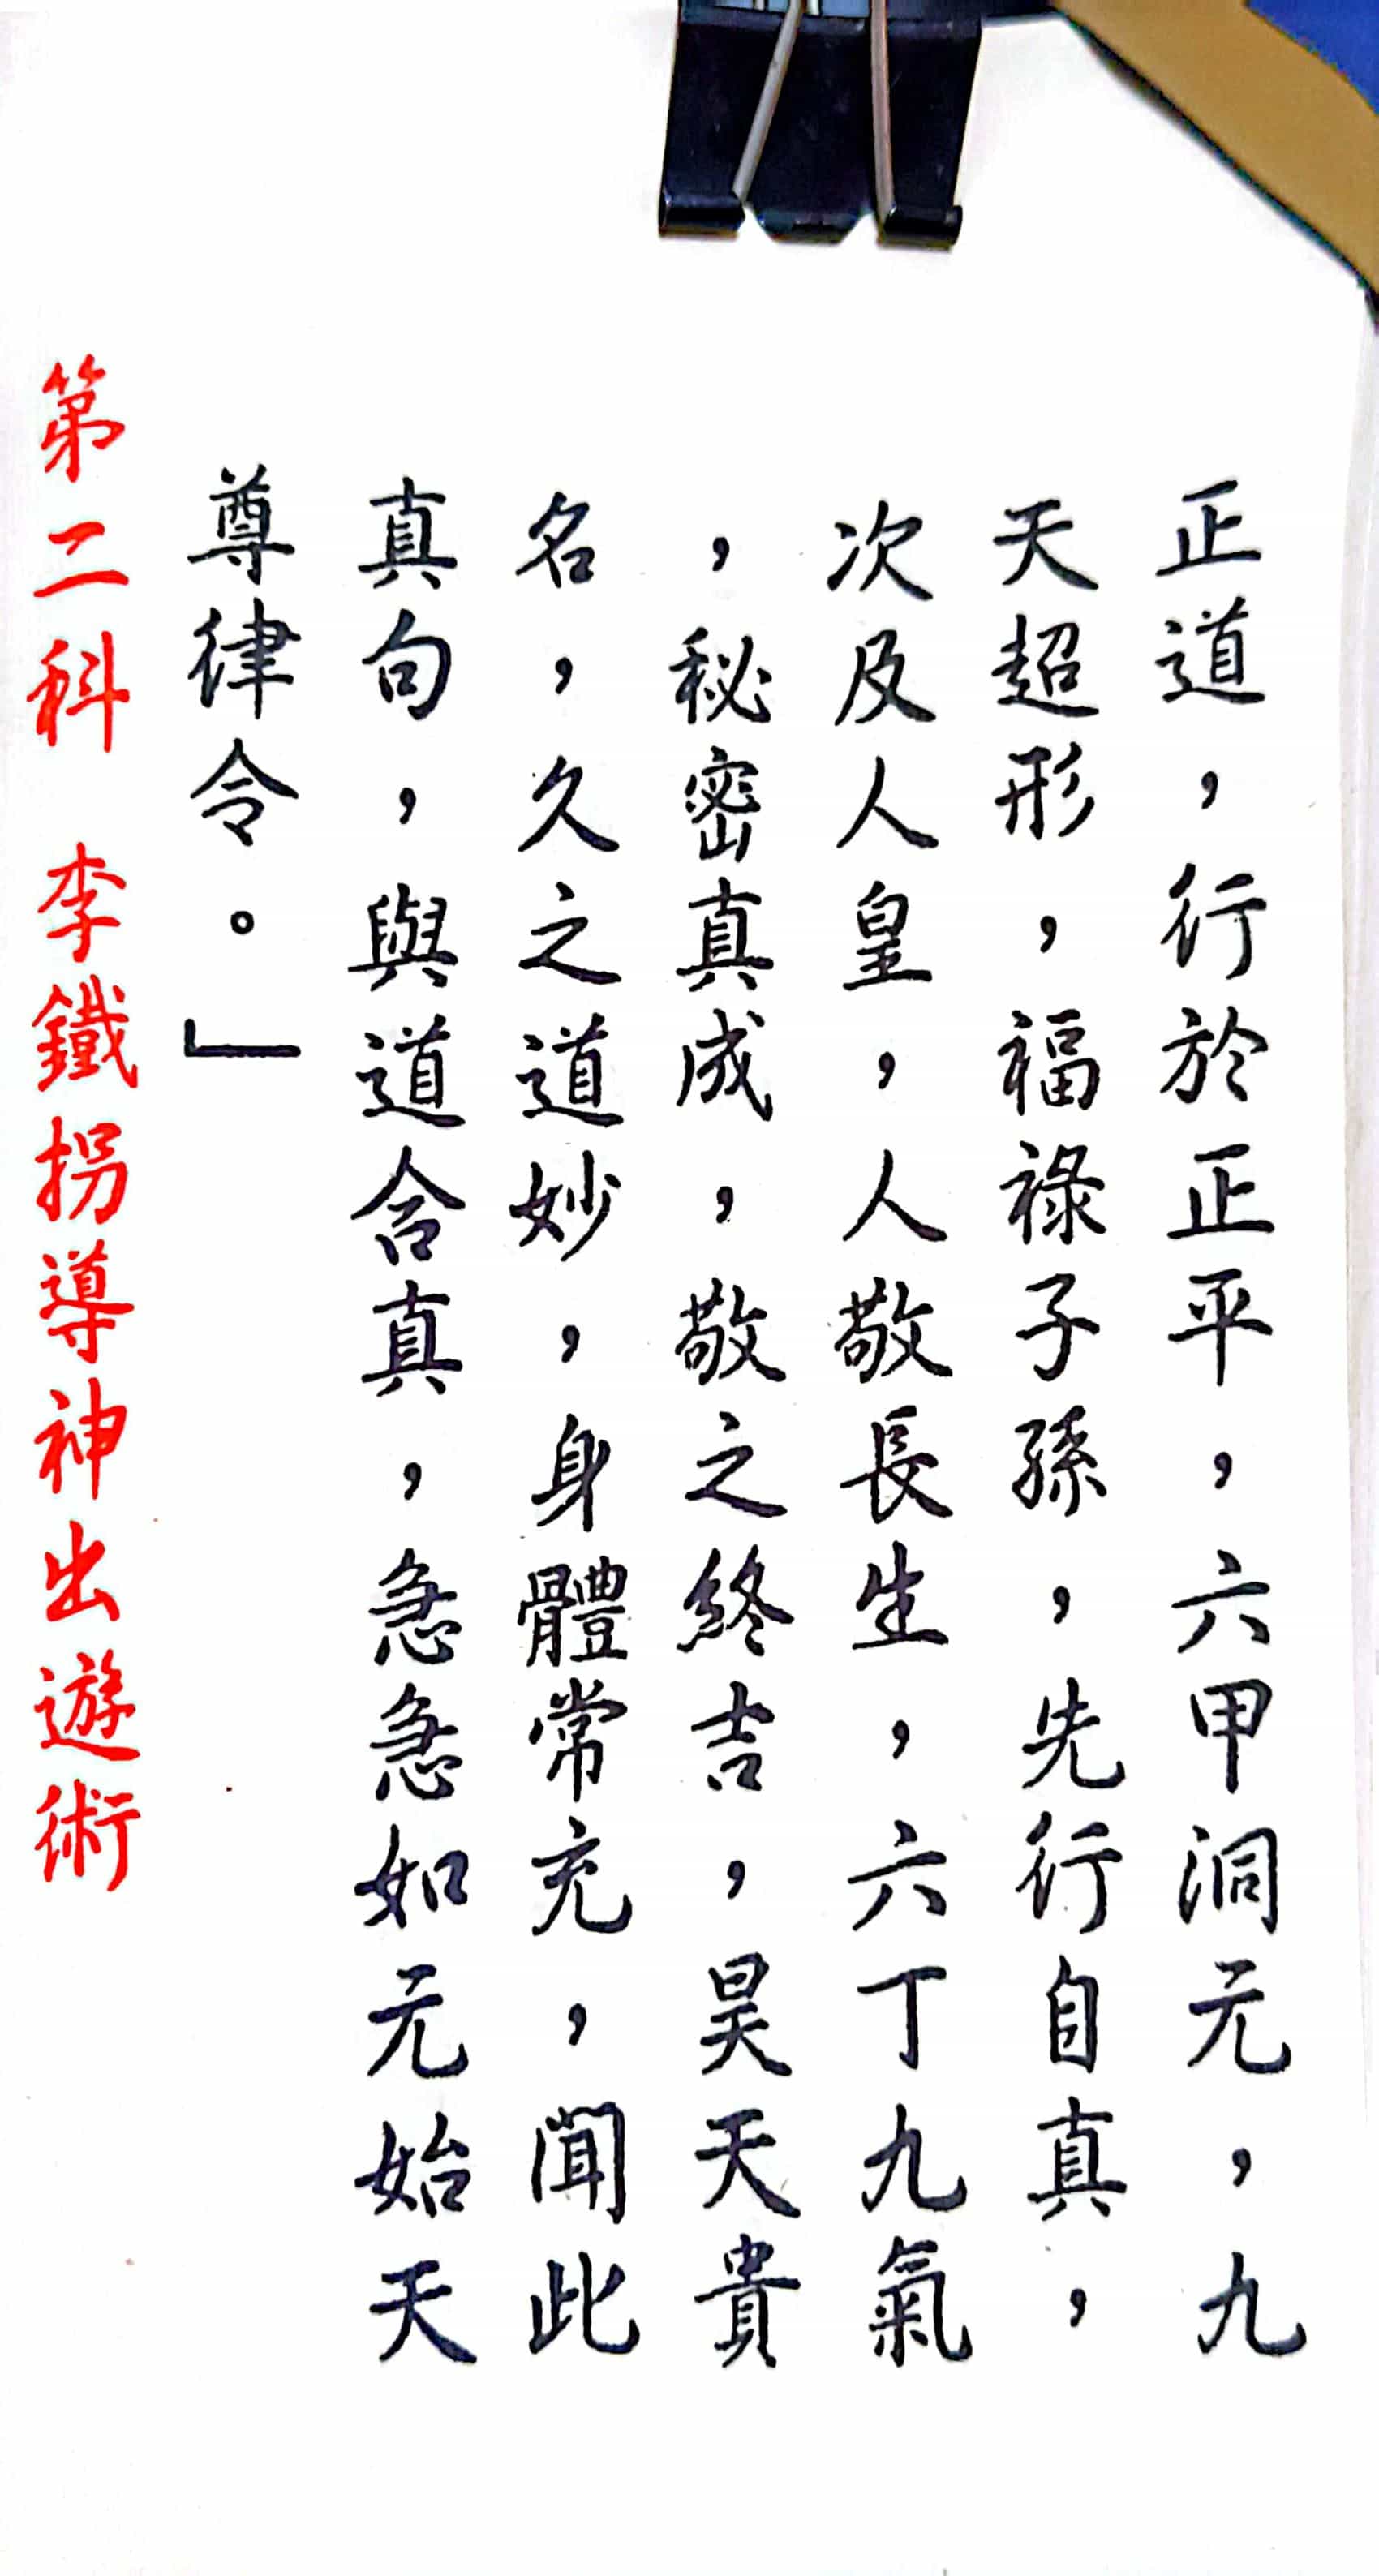 正道，行於正平，六甲洞元，九
天超形，福祿子孫，先行自真，
次及人皇，人敬長生，六丁九氣
，秘密真成，敬之終吉，昊天貴
名，久之道妙，身體常充，聞此
真句，與道含真，急急如元始天
尊律令。」
第二科　李鐵拐導神出遊術